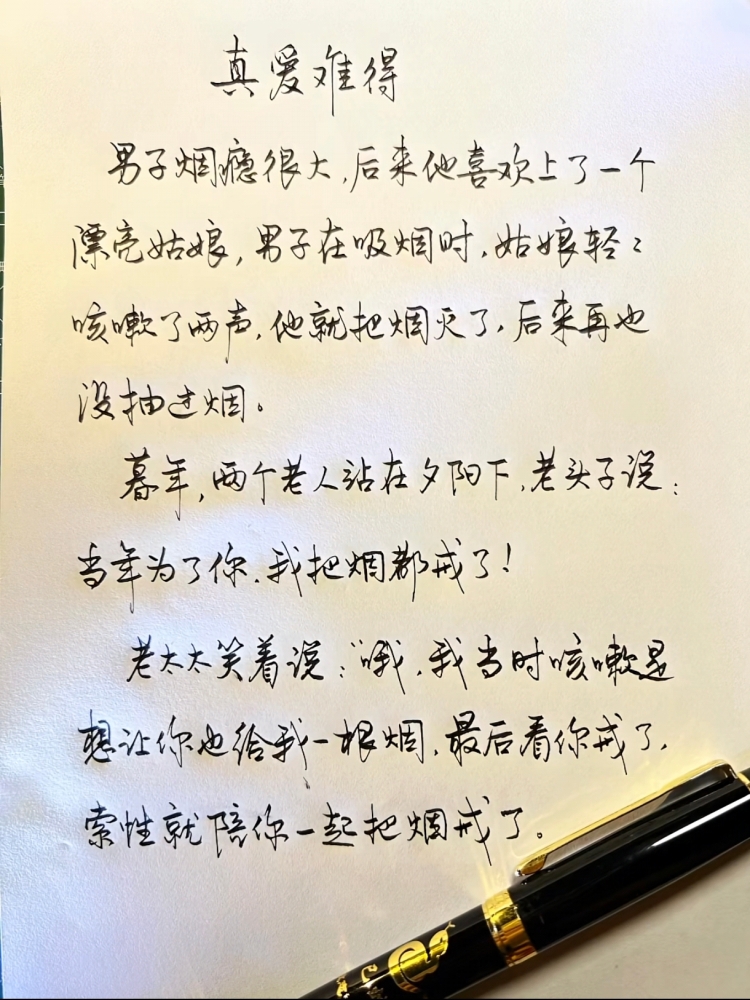 真爱难得
男子烟瘾很大,后来他喜欢上了一个
漂亮姑娘,男子在吸烟时,姑娘轻々
咳嗽了两声,他就把烟灭了,后来再也
没抽过烟。
暮年,两个老人站在夕阳下,老头子说:
当年为了你,我把烟都戒了!
老太太笑着说:“哦,我当时咳嗽是
想让你也给我一根烟,最后看你戒了,
索性就陪你一起把烟戒了。